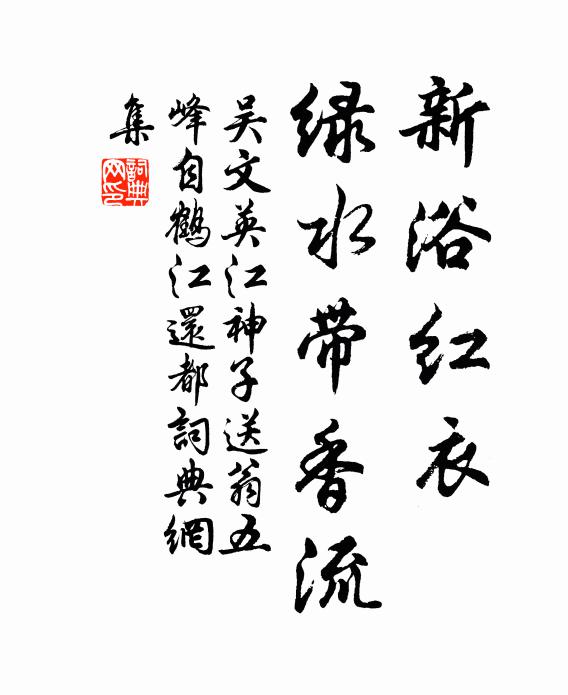 新浴红衣
绿水带香流
吴文英江神子送翁五
峰自鹤江還都詞典網
集
詞典
网印